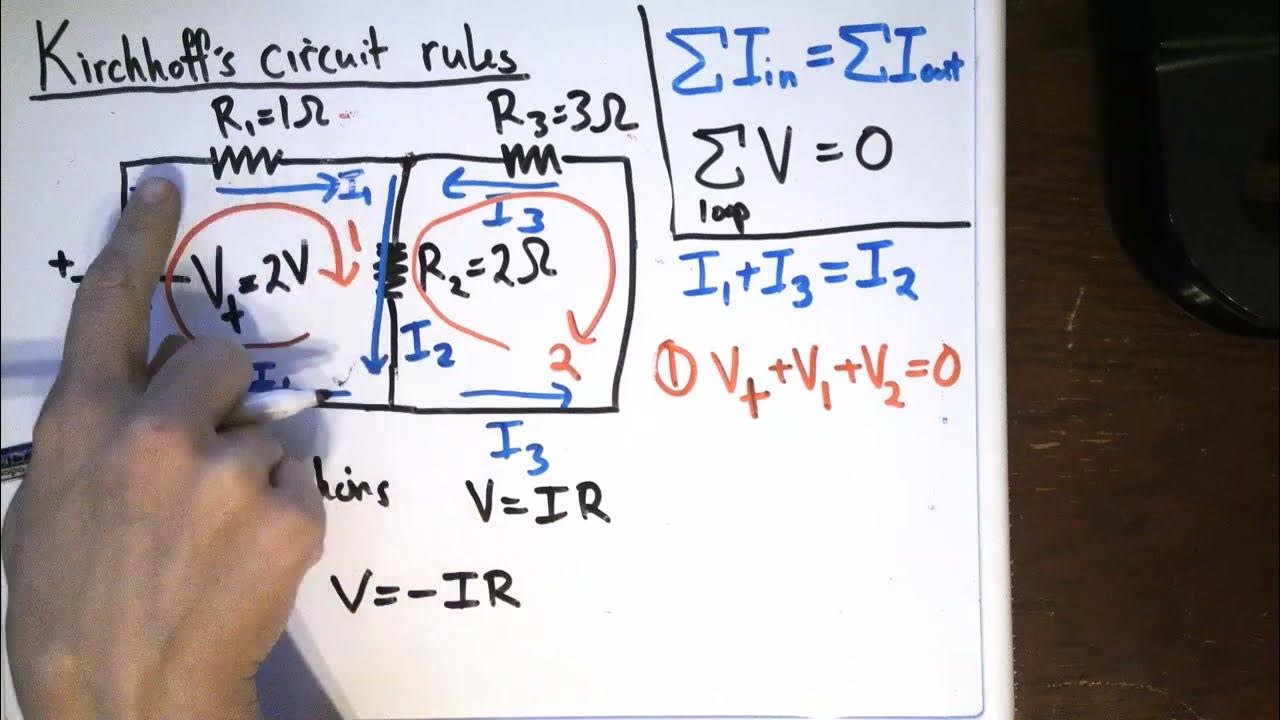 Kirchhoff's circuit rules
R₁=1Ω
R₃=3Ω
I₁
I₃
+
V₊=2V
1
R₂=2Ω
I₂
2
I₁
I₃
V=IR
V=-IR
ΣI_in=ΣI_out
ΣV=0
loop
I₁+I₃=I₂
① V₊+V₁+V₂=0